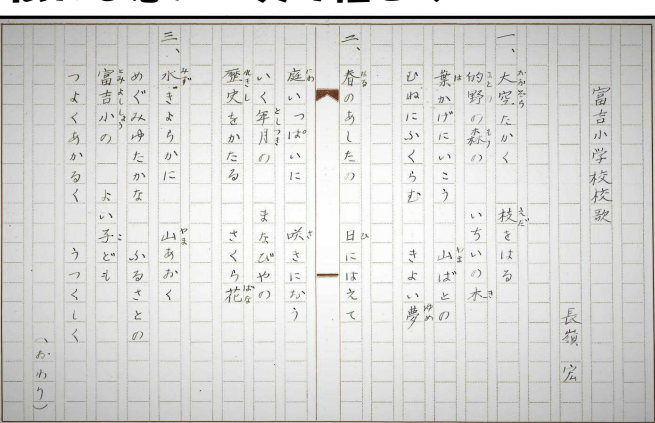 富吉小学校校歌
長嶺 宏
一、大空たかく 枝をはる
的野の森の いちいの木
葉かげにいこう 山ばとの
むねにふくらむ きよい夢
二、春のあしたの 日にはえて
庭いっぱいに 咲きになう
いく年月の まなびやの
歴史をかたる さくら花
三、水きよらかに 山あおく
めぐみゆたかな ふるさとの
富吉小の よい子ども
つよくあかるく うつくしく
(おわり)